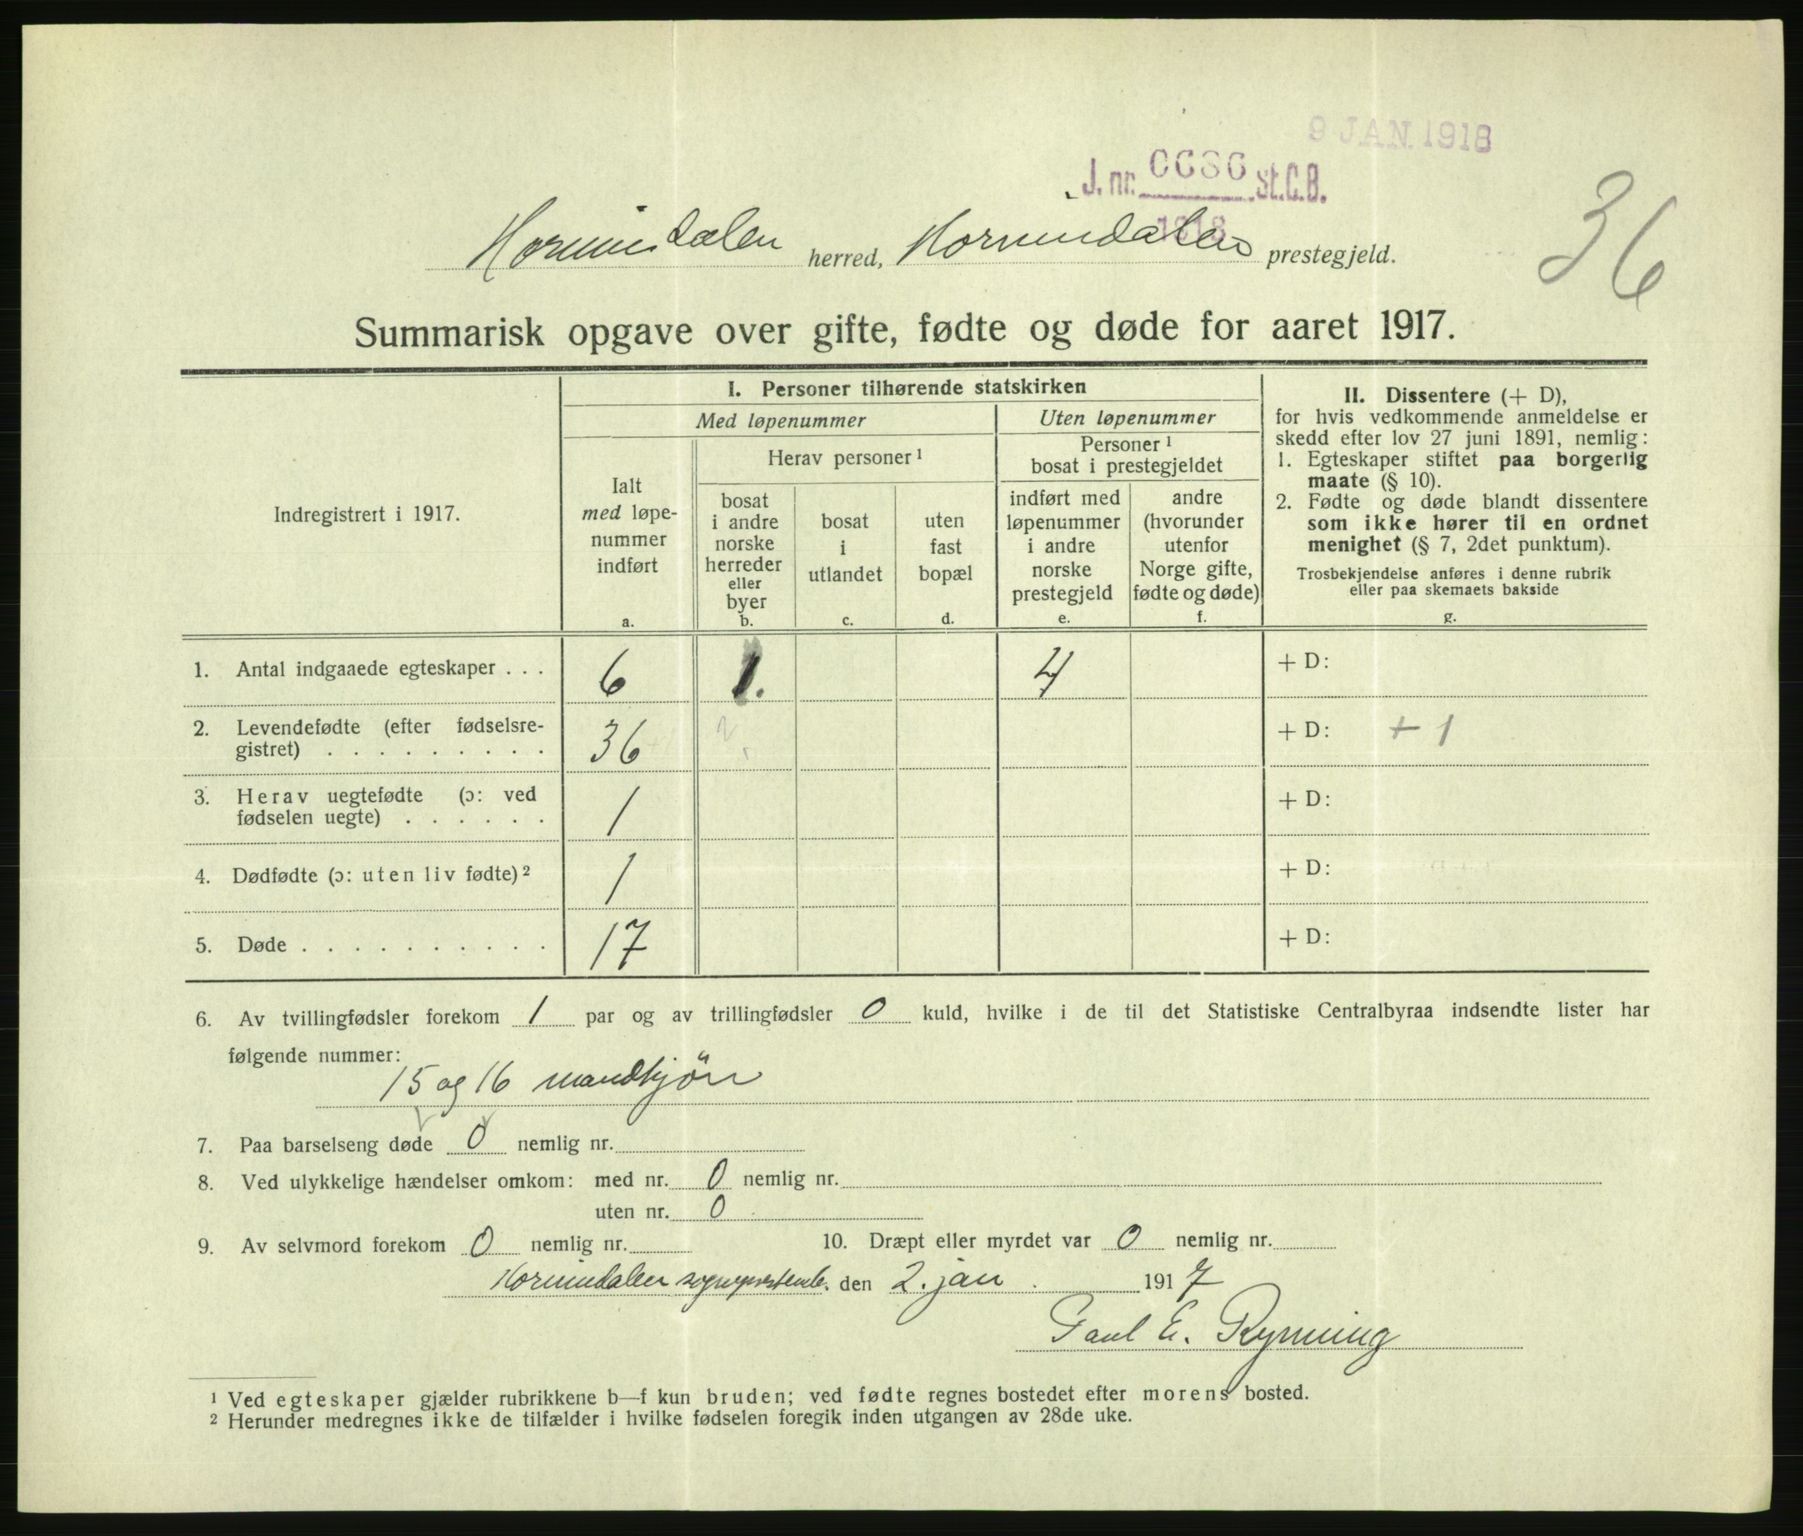 9 JAN. 1918
J. nr. St.C.B.
36
Hornindalen herred, Hornindalen prestegjeld.
Summarisk opgave over gifte, fødte og døde for aaret 1917.
Indregistrert i 1917.
I. Personer tilhørende statskirken
Med løpenummer
Uten løpenummer
Ialt
med løpe-
nummer
indført
a.
Herav personer ¹
bosat
i andre
norske
herreder
eller
byer
b.
bosat
i
utlandet
c.
uten
fast
bopæl
d.
Personer ¹
bosat i prestegjeldet
indført med
løpenummer
i andre
norske
prestegjeld
e.
andre
(hvorunder
utenfor
Norge gifte,
fødte og døde)
f.
II. Dissentere (+ D),
for hvis vedkommende anmeldelse er
skedd efter lov 27 juni 1891, nemlig:
1. Egteskaper stiftet paa borgerlig
maate (§ 10).
2. Fødte og døde blandt dissentere
som ikke hører til en ordnet
menighet (§ 7, 2det punktum).
Trosbekjendelse anføres i denne rubrik
eller paa skemaets bakside
g.
1. Antal indgaaede egteskaper . . . 6 1. 4 + D:
2. Levendefødte (efter fødselsre-
gistret) . . . . . . . . . 36 2 + D: + 1
3. Herav uegtefødte (ɔ: ved
fødselen uegte) . . . . . . 1 + D:
4. Dødfødte (ɔ: uten liv fødte) ² 1 + D:
5. Døde . . . . . . . . . . 17 + D:
6. Av tvillingfødsler forekom 1 par og av trillingfødsler 0 kuld, hvilke i de til det Statistiske Centralbyraa indsendte lister har
følgende nummer:
15 og 16 mandkjön
7. Paa barselseng døde 0 nemlig nr.
8. Ved ulykkelige hændelser omkom: med nr. 0 nemlig nr.
uten nr. 0
9. Av selvmord forekom 0 nemlig nr. 10. Dræpt eller myrdet var 0 nemlig nr.
Hornindalen sogneprestemb. den 2. jan. 1917
Paul E. Rynning
¹ Ved egteskaper gjælder rubrikkene b—f kun bruden; ved fødte regnes bostedet efter morens bosted.
² Herunder medregnes ikke de tilfælder i hvilke fødselen foregik inden utgangen av 28de uke.